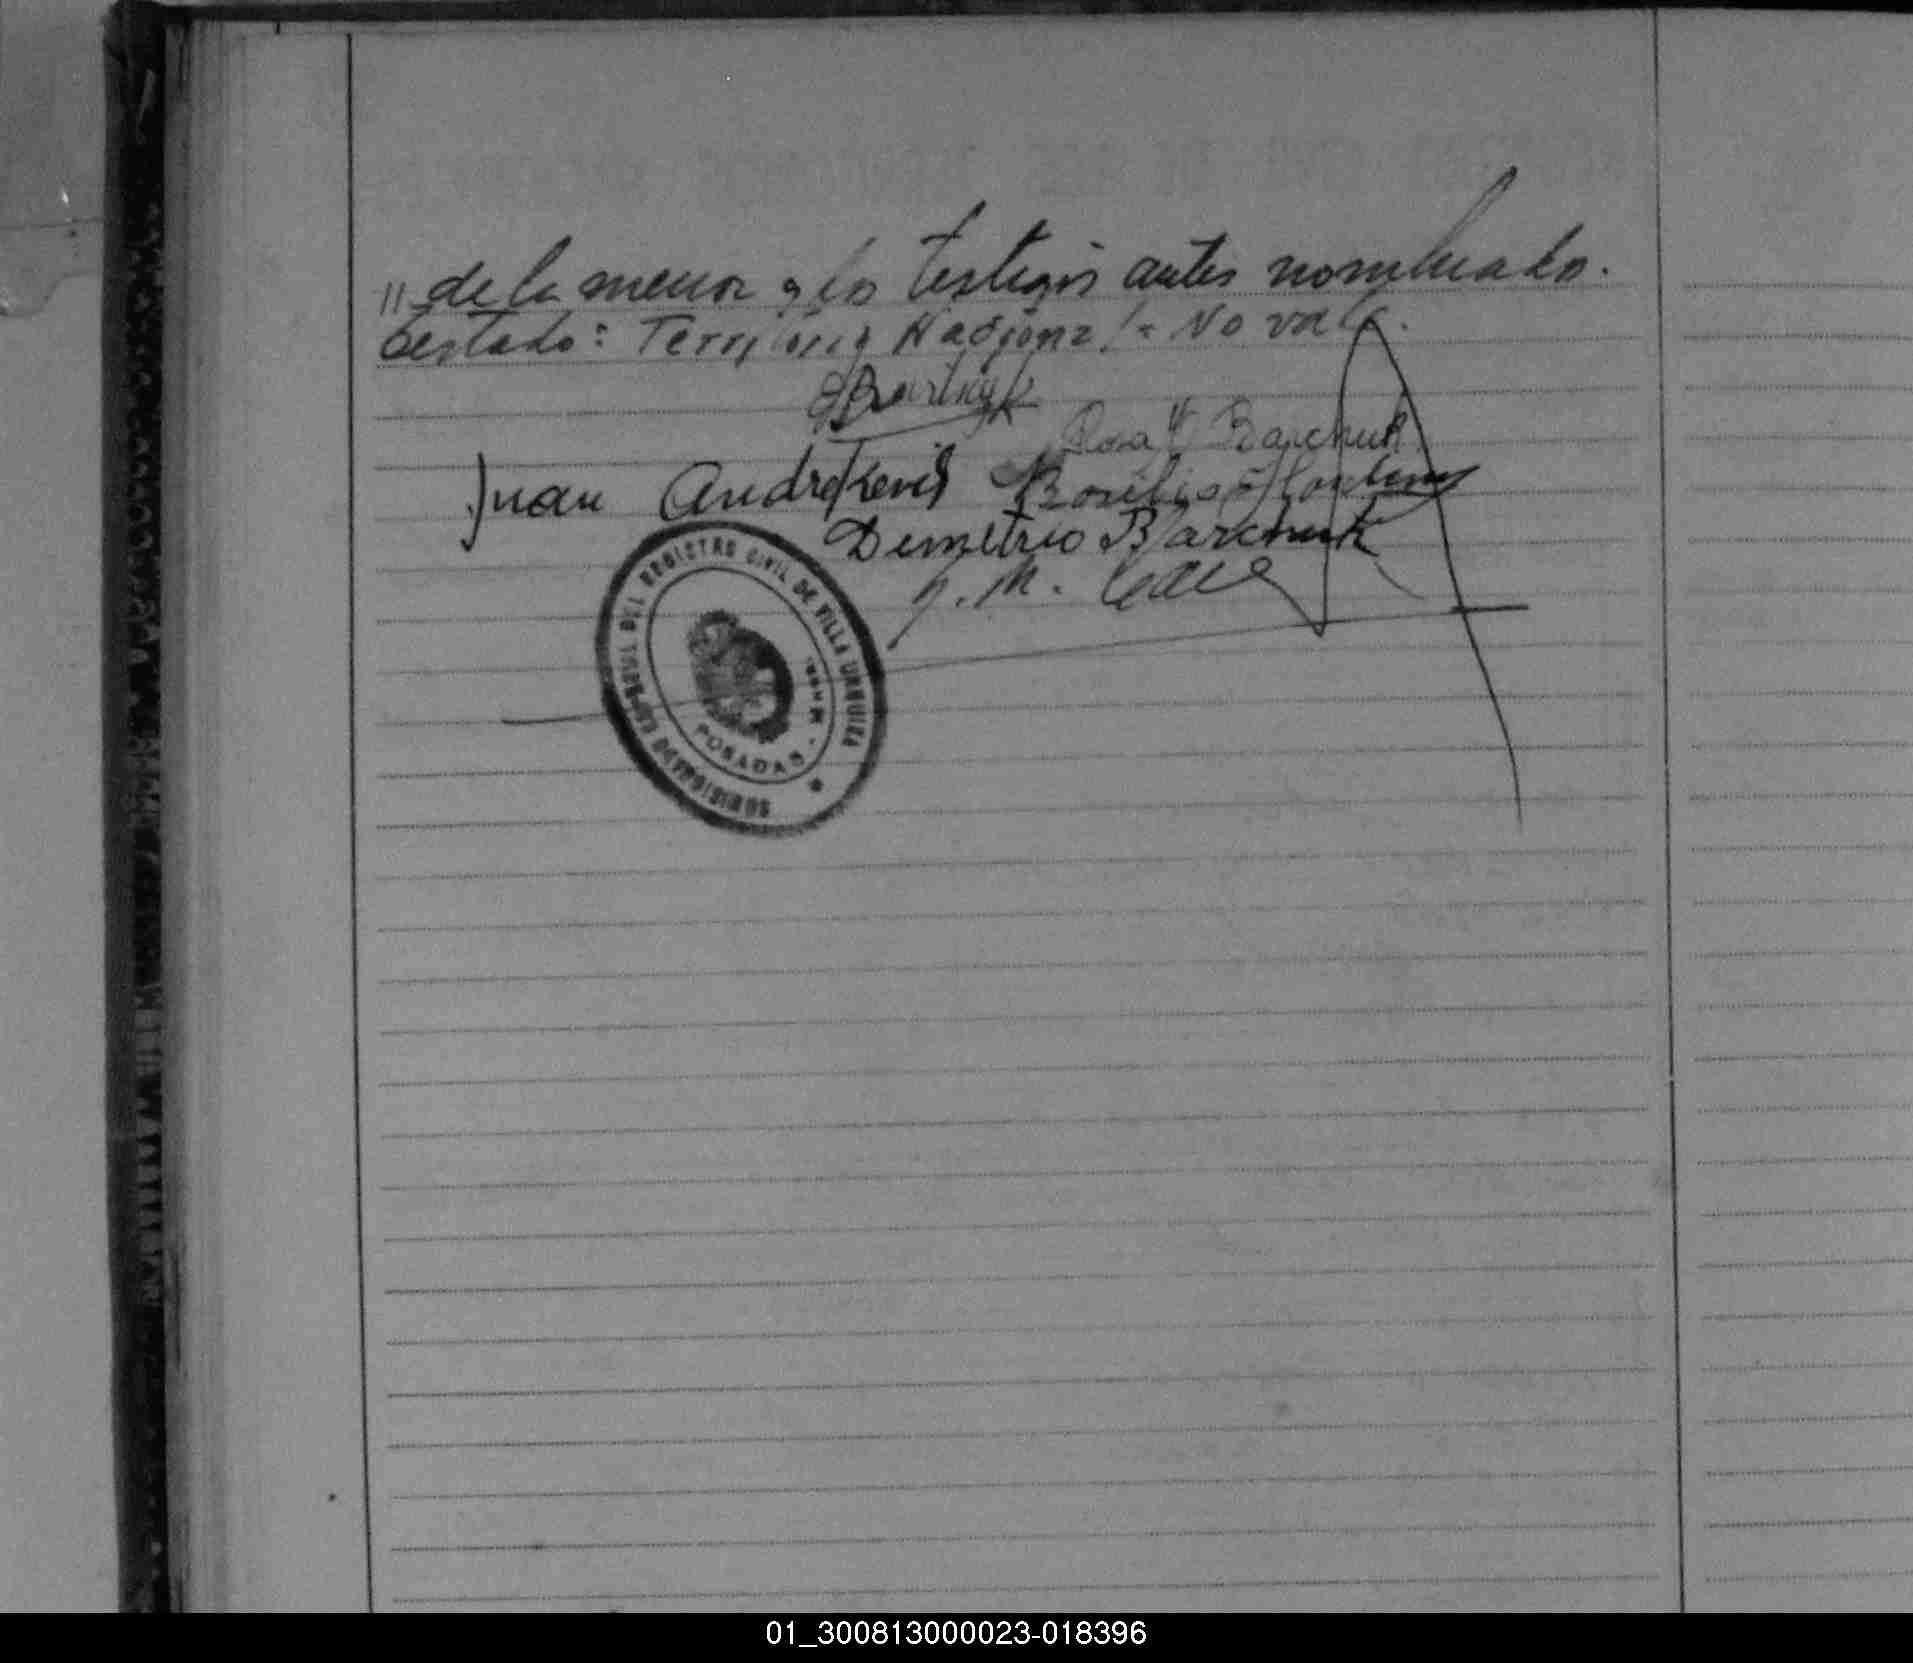 " de la menor y los testigos antes nombrados.
Testado: Territorio Nacional = No vale.
Rosa H Barchuk
Juan Andrekevis Basilio
Demetrio Barchuk
SUBDIVISION DEL REGISTRO CIVIL DE VILLA URQUIZA
POSADAS - MNES.
01_300813000023-018396